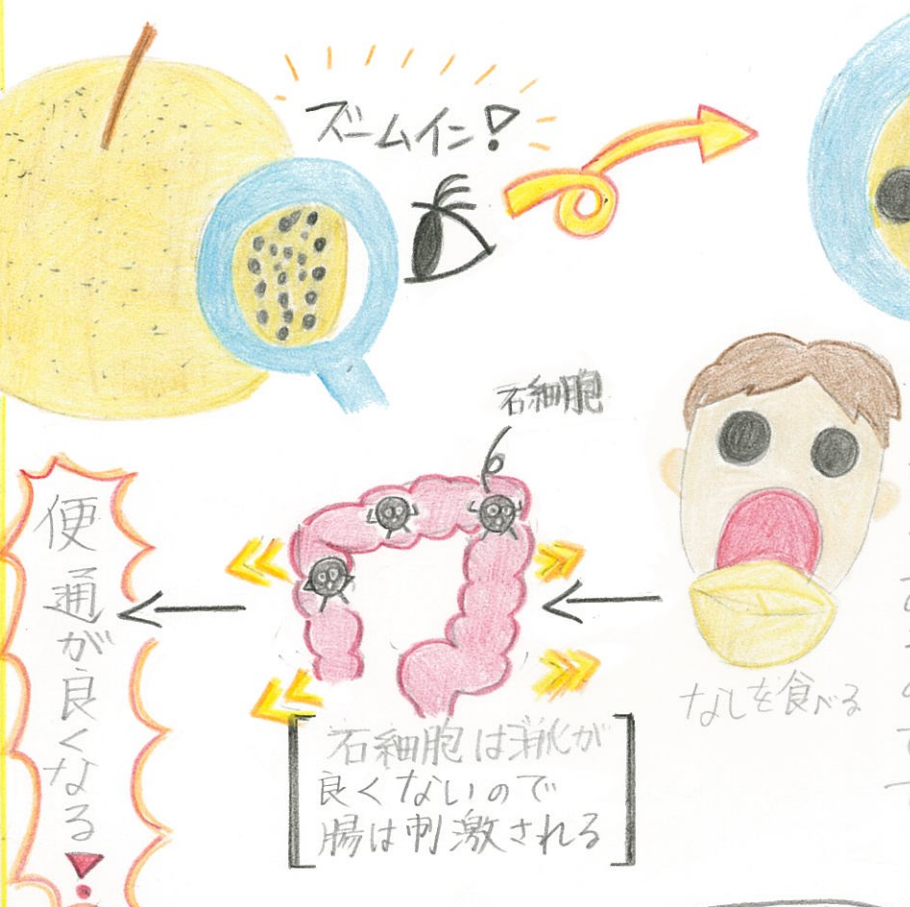 ズームイン!
石細胞
なしを食べる
石細胞は消化が
良くないので
腸は刺激される
便通が良くなる!